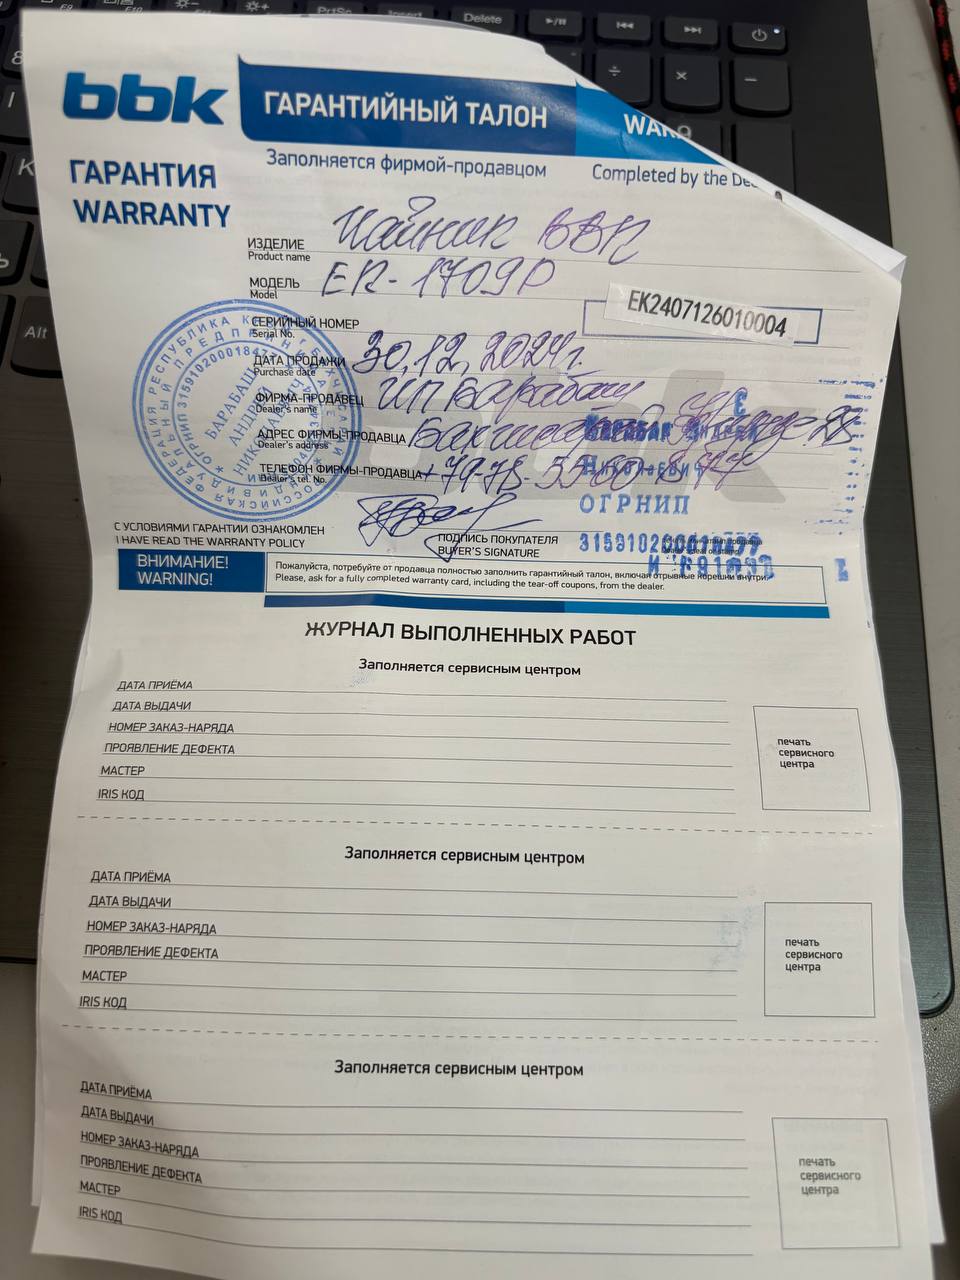 bbk
ГАРАНТИЙНЫЙ ТАЛОН
ГАРАНТИЯ
WARRANTY
Заполняется фирмой-продавцом
Completed by the
ИЗДЕЛИЕ Чайник BBK
Product name
МОДЕЛЬ EK-1709P
Model
СЕРИЙНЫЙ НОМЕР EK2407126010004
Serial No.
ДАТА ПРОДАЖИ 30.12.2024г.
Purchase date
ФИРМА-ПРОДАВЕЦ ИП Барабаш
Dealer's name
АДРЕС ФИРМЫ-ПРОДАВЦА
Dealer's address
ТЕЛЕФОН ФИРМЫ-ПРОДАВЦА
Dealer's tel. No.
БАРАБАШ
АНДРЕЙ
НИКОЛАЕВИЧ
ОГРНИП
С УСЛОВИЯМИ ГАРАНТИИ ОЗНАКОМЛЕН
I HAVE READ THE WARRANTY POLICY
ПОДПИСЬ ПОКУПАТЕЛЯ
BUYER'S SIGNATURE
ВНИМАНИЕ!
WARNING!
Пожалуйста, потребуйте от продавца полностью заполнить гарантийный талон, включая отрывные корешки внутри.
Please, ask for a fully completed warranty card, including the tear-off coupons, from the dealer.
ЖУРНАЛ ВЫПОЛНЕННЫХ РАБОТ
Заполняется сервисным центром
ДАТА ПРИЁМА
ДАТА ВЫДАЧИ
НОМЕР ЗАКАЗ-НАРЯДА
ПРОЯВЛЕНИЕ ДЕФЕКТА
МАСТЕР
IRIS КОД
печать
сервисного
центра
Заполняется сервисным центром
ДАТА ПРИЁМА
ДАТА ВЫДАЧИ
НОМЕР ЗАКАЗ-НАРЯДА
ПРОЯВЛЕНИЕ ДЕФЕКТА
МАСТЕР
IRIS КОД
печать
сервисного
центра
Заполняется сервисным центром
ДАТА ПРИЁМА
ДАТА ВЫДАЧИ
НОМЕР ЗАКАЗ-НАРЯДА
ПРОЯВЛЕНИЕ ДЕФЕКТА
МАСТЕР
IRIS КОД
печать
сервисного
центра